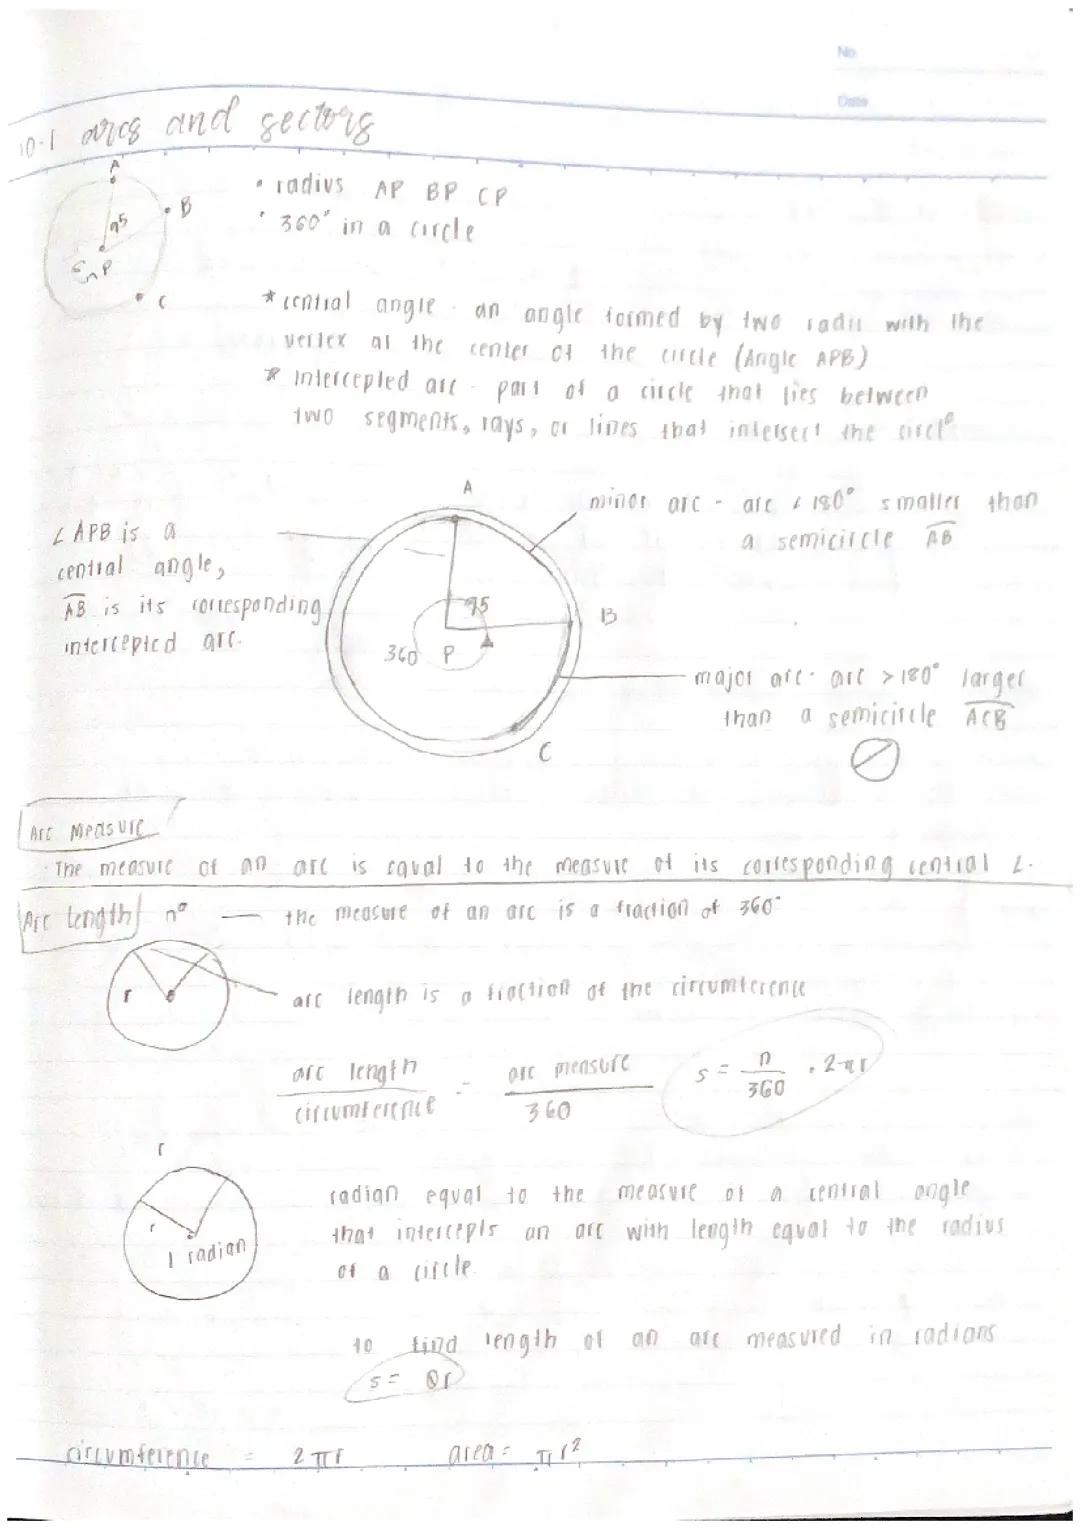 No.
Date
10-1 arcs and sectors
A
B
95
P
C
• radius AP BP CP
• 360° in a circle
* central angle - an angle formed by two radii with the
vertex at the center of the circle (Angle APB)
* Intercepted arc - part of a circle that lies between
two segments, rays, or lines that intersect the circle
A
minor arc - arc < 180° smaller than
a semicircle AB
∠APB is a
central angle,
AB is its corresponding
intercepted arc.
95
B
360 P
major arc - arc > 180° larger
than a semicircle ACB
C
Arc Measure
· The measure of an arc is equal to the measure of its corresponding central ∠.
Arc length n° — the measure of an arc is a fraction of 360°
r
arc length is a fraction of the circumference
arc length / circumference = arc measure / 360
s = n/360 · 2πr
r
r
1 radian
radian equal to the measure of a central angle
that intercepts an arc with length equal to the radius
of a circle.
to find length of an arc measured in radians
s = θr
circumference = 2πr area = πr²